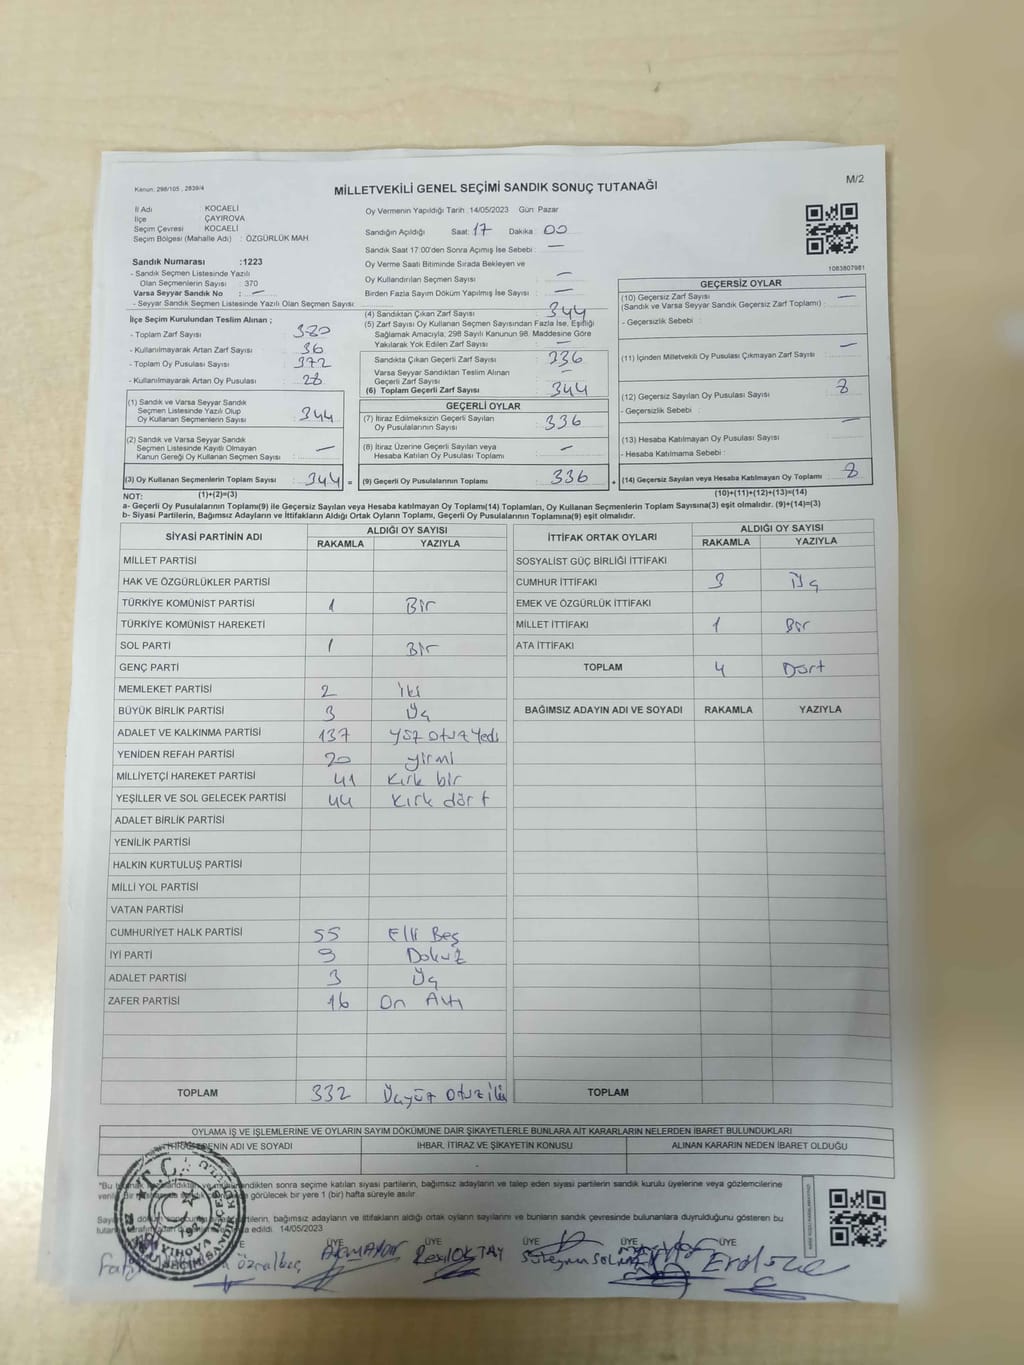 Kanun: 298/105 , 2839/4
MİLLETVEKİLİ GENEL SEÇİMİ SANDIK SONUÇ TUTANAĞI
M/2
İl Adı : KOCAELİ
İlçe : ÇAYIROVA
Seçim Çevresi : KOCAELİ
Seçim Bölgesi (Mahalle Adı) : ÖZGÜRLÜK MAH.
Sandık Numarası :1223
- Sandık Seçmen Listesinde Yazılı
Olan Seçmenlerin Sayısı : 370
Varsa Seyyar Sandık No : —
- Seyyar Sandık Seçmen Listesinde Yazılı Olan Seçmen Sayısı
Oy Vermenin Yapıldığı Tarih :14/05/2023 Gün: Pazar
Sandığın Açıldığı Saat: 17 Dakika: 00
Sandık Saat 17:00'den Sonra Açımış İse Sebebi : —
Oy Verme Saati Bitiminde Sırada Bekleyen ve
Oy Kullandırılan Seçmen Sayısı : —
Birden Fazla Sayım Döküm Yapılmış İse Sayısı : —
1083807981
İlçe Seçim Kurulundan Teslim Alınan ;
- Toplam Zarf Sayısı : 380
- Kullanılmayarak Artan Zarf Sayısı : 36
- Toplam Oy Pusulası Sayısı : 372
- Kullanılmayarak Artan Oy Pusulası : 28
(1) Sandık ve Varsa Seyyar Sandık
Seçmen Listesinde Yazılı Olup
Oy Kullanan Seçmenlerin Sayısı : 344
(2) Sandık ve Varsa Seyyar Sandık
Seçmen Listesinde Kayıtlı Olmayan
Kanun Gereği Oy Kullanan Seçmen Sayısı : —
(3) Oy Kullanan Seçmenlerin Toplam Sayısı : 344 =
(4) Sandıktan Çıkan Zarf Sayısı : 344
(5) Zarf Sayısı Oy Kullanan Seçmen Sayısından Fazla İse, Eşitliği
Sağlamak Amacıyla; 298 Sayılı Kanunun 98. Maddesine Göre
Yakılarak Yok Edilen Zarf Sayısı : —
Sandıkta Çıkan Geçerli Zarf Sayısı : 336
Varsa Seyyar Sandıktan Teslim Alınan
Geçerli Zarf Sayısı : —
(6) Toplam Geçerli Zarf Sayısı : 344
GEÇERLİ OYLAR
(7) İtiraz Edilmeksizin Geçerli Sayılan
Oy Pusulalarının Sayısı : 336
(8) İtiraz Üzerine Geçerli Sayılan veya
Hesaba Katılan Oy Pusulası Toplamı : —
(9) Geçerli Oy Pusulalarının Toplamı : 336 +
GEÇERSİZ OYLAR
(10) Geçersiz Zarf Sayısı : —
(Sandık ve Varsa Seyyar Sandık Geçersiz Zarf Toplamı) :
- Geçersizlik Sebebi :
(11) İçinden Milletvekili Oy Pusulası Çıkmayan Zarf Sayısı : —
(12) Geçersiz Sayılan Oy Pusulası Sayısı : 8
- Geçersizlik Sebebi :
(13) Hesaba Katılmayan Oy Pusulası Sayısı : —
- Hesaba Katılmama Sebebi :
(14) Geçersiz Sayılan veya Hesaba Katılmayan Oy Toplamı : 8
NOT: (1)+(2)=(3) (10)+(11)+(12)+(13)=(14)
a- Geçerli Oy Pusulalarının Toplamı(9) ile Geçersiz Sayılan veya Hesaba katılmayan Oy Toplamı(14) Toplamları, Oy Kullanan Seçmenlerin Toplam Sayısına(3) eşit olmalıdır. (9)+(14)=(3)
b- Siyasi Partilerin, Bağımsız Adayların ve İttifakların Aldığı Ortak Oyların Toplamı, Geçerli Oy Pusulalarının Toplamına(9) eşit olmalıdır.
SİYASİ PARTİNİN ADI ALDIĞI OY SAYISI
RAKAMLA YAZIYLA
MİLLET PARTİSİ
HAK VE ÖZGÜRLÜKLER PARTİSİ
TÜRKİYE KOMÜNİST PARTİSİ 1 Bir
TÜRKİYE KOMÜNİST HAREKETİ
SOL PARTİ 1 Bir
GENÇ PARTİ
MEMLEKET PARTİSİ 2 iki
BÜYÜK BİRLİK PARTİSİ 3 Üç
ADALET VE KALKINMA PARTİSİ 137 yüz otuz Yedi
YENİDEN REFAH PARTİSİ 20 yirmi
MİLLİYETÇİ HAREKET PARTİSİ 41 kırk bir
YEŞİLLER VE SOL GELECEK PARTİSİ 44 kırk dört
ADALET BİRLİK PARTİSİ
YENİLİK PARTİSİ
HALKIN KURTULUŞ PARTİSİ
MİLLİ YOL PARTİSİ
VATAN PARTİSİ
CUMHURİYET HALK PARTİSİ 55 Elli Beş
İYİ PARTİ 9 Dokuz
ADALET PARTİSİ 3 Üç
ZAFER PARTİSİ 16 On Altı
TOPLAM 332 Üçyüz otuz iki
İTTİFAK ORTAK OYLARI ALDIĞI OY SAYISI
RAKAMLA YAZIYLA
SOSYALİST GÜÇ BİRLİĞİ İTTİFAKI
CUMHUR İTTİFAKI 3 Üç
EMEK VE ÖZGÜRLÜK İTTİFAKI
MİLLET İTTİFAKI 1 Bir
ATA İTTİFAKI
TOPLAM 4 Dört
BAĞIMSIZ ADAYIN ADI VE SOYADI RAKAMLA YAZIYLA
TOPLAM
OYLAMA İŞ VE İŞLEMLERİNE VE OYLARIN SAYIM DÖKÜMÜNE DAİR ŞİKAYETLERLE BUNLARA AİT KARARLARIN NELERDEN İBARET BULUNDUKLARI
ADI VE SOYADI İHBAR, İTİRAZ VE ŞİKAYETİN KONUSU ALINAN KARARIN NEDEN İBARET OLDUĞU
*Bu sonra seçime katılan siyasi partilerin, bağımsız adayların ve talep eden siyasi partilerin sandık kurulu üyelerine veya gözlemcilerine
görülecek bir yere 1 (bir) hafta süreyle asılır.
bağımsız adayların ve ittifakların aldığı ortak oyların sayılarını ve bunların sandık çevresinde bulunanlara duyrulduğunu gösteren bu
edildi. 14/05/2023
ÜYE ÜYE ÜYE ÜYE ÜYE
Resul OKTAY Süleyman